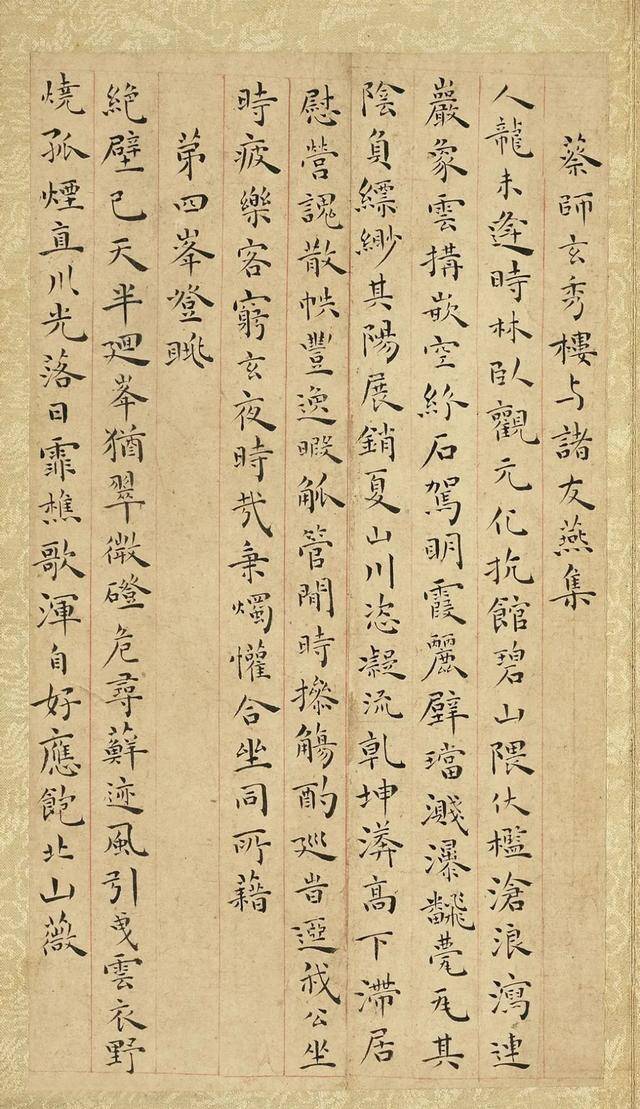 蔡師玄秀樓与諸友燕集
人龍未逢時林臥觀元化抗館碧山隈伏檻滄浪瀉連
巖象雲構嵌空紛石駕明霞麗璧璫濺瀑飜甍瓦其
陰負縹緲其陽展銷夏山川恣凝流乾坤漭高下滯居
慰營諰散帙豐逸暇觚管閒時摻觴酌廵昔迺我公坐
時疲樂客窮玄夜時哉秉燭懽合坐同所藉
第四峯登眺
絶壁已天半廻峯猶翠微磴危尋蘚迹風引曵雲衣野
燒孤煙直川光落日霏樵歌渾自好應飽北山薇